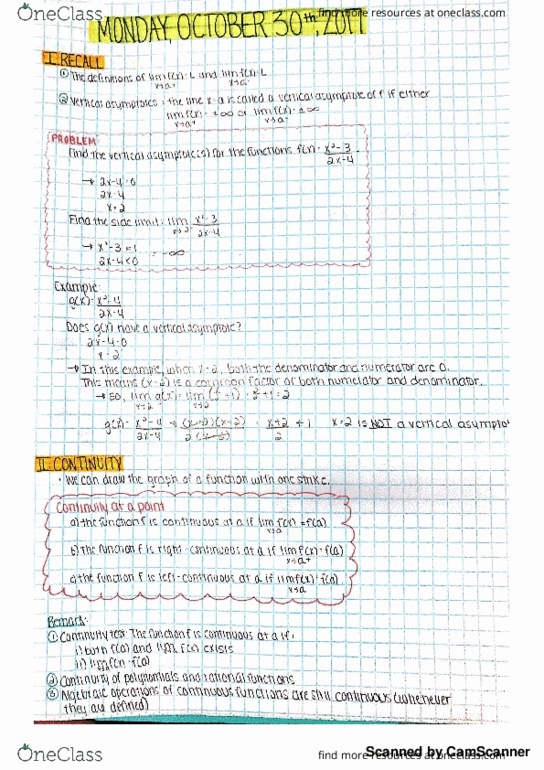 OneClass
find more resources at oneclass.com
MONDAY, OCTOBER 30th, 2017
I. RECALL
① The definitions of lim f(x) = L and lim f(x) = L
x→a+ x→a-
② Vertical asymptotes: the line x=a is called a vertical asymptote of f if either
lim f(x) = ±∞ or lim f(x) = ±∞
x→a- x→a+
PROBLEM:
Find the vertical asymptote(s) for the functions f(x) = x²-3
2x-4
→ 2x-4=0
2x=4
x=2
Find the side limit: lim x²-3
x→2- 2x-4
→ x²-3=1
2x-4<0 = -∞
Example:
g(x)= x²-4
2x-4
Does g(x) have a vertical asymptote?
2x-4=0
x=2
→ In this example, when x=2, both the denominator and numerator are 0.
This means (x-2) is a common factor of both numerator and denominator.
→ so, lim g(x) = lim (x/2 + 1) = 2/2 + 1 = 2
x→2 x→2
g(x)= x²-4 = (x-2)(x+2) = x+2 + 1 x=2 is NOT a vertical asympto
2x-4 2(x-2) 2
II. CONTINUITY
• We can draw the graph of a function with one strike.
Continuity at a point
a) the function f is continuous at a if lim f(x) = f(a)
x→a
b) the function f is right-continuous at a if lim f(x) = f(a)
x→a+
c) the function f is left-continuous at a if lim f(x) = f(a)
x→a
Remark:
① Continuity test: The function f is continuous at a if:
i) both f(a) and lim f(x) exists
ii) lim f(x) = f(a)
② Continuity of polynomials and rational functions
③ Algebraic operations of continuous functions are still continuous (whenever
they are defined)
OneClass
find more resources at oneclass.com
Scanned by CamScanner